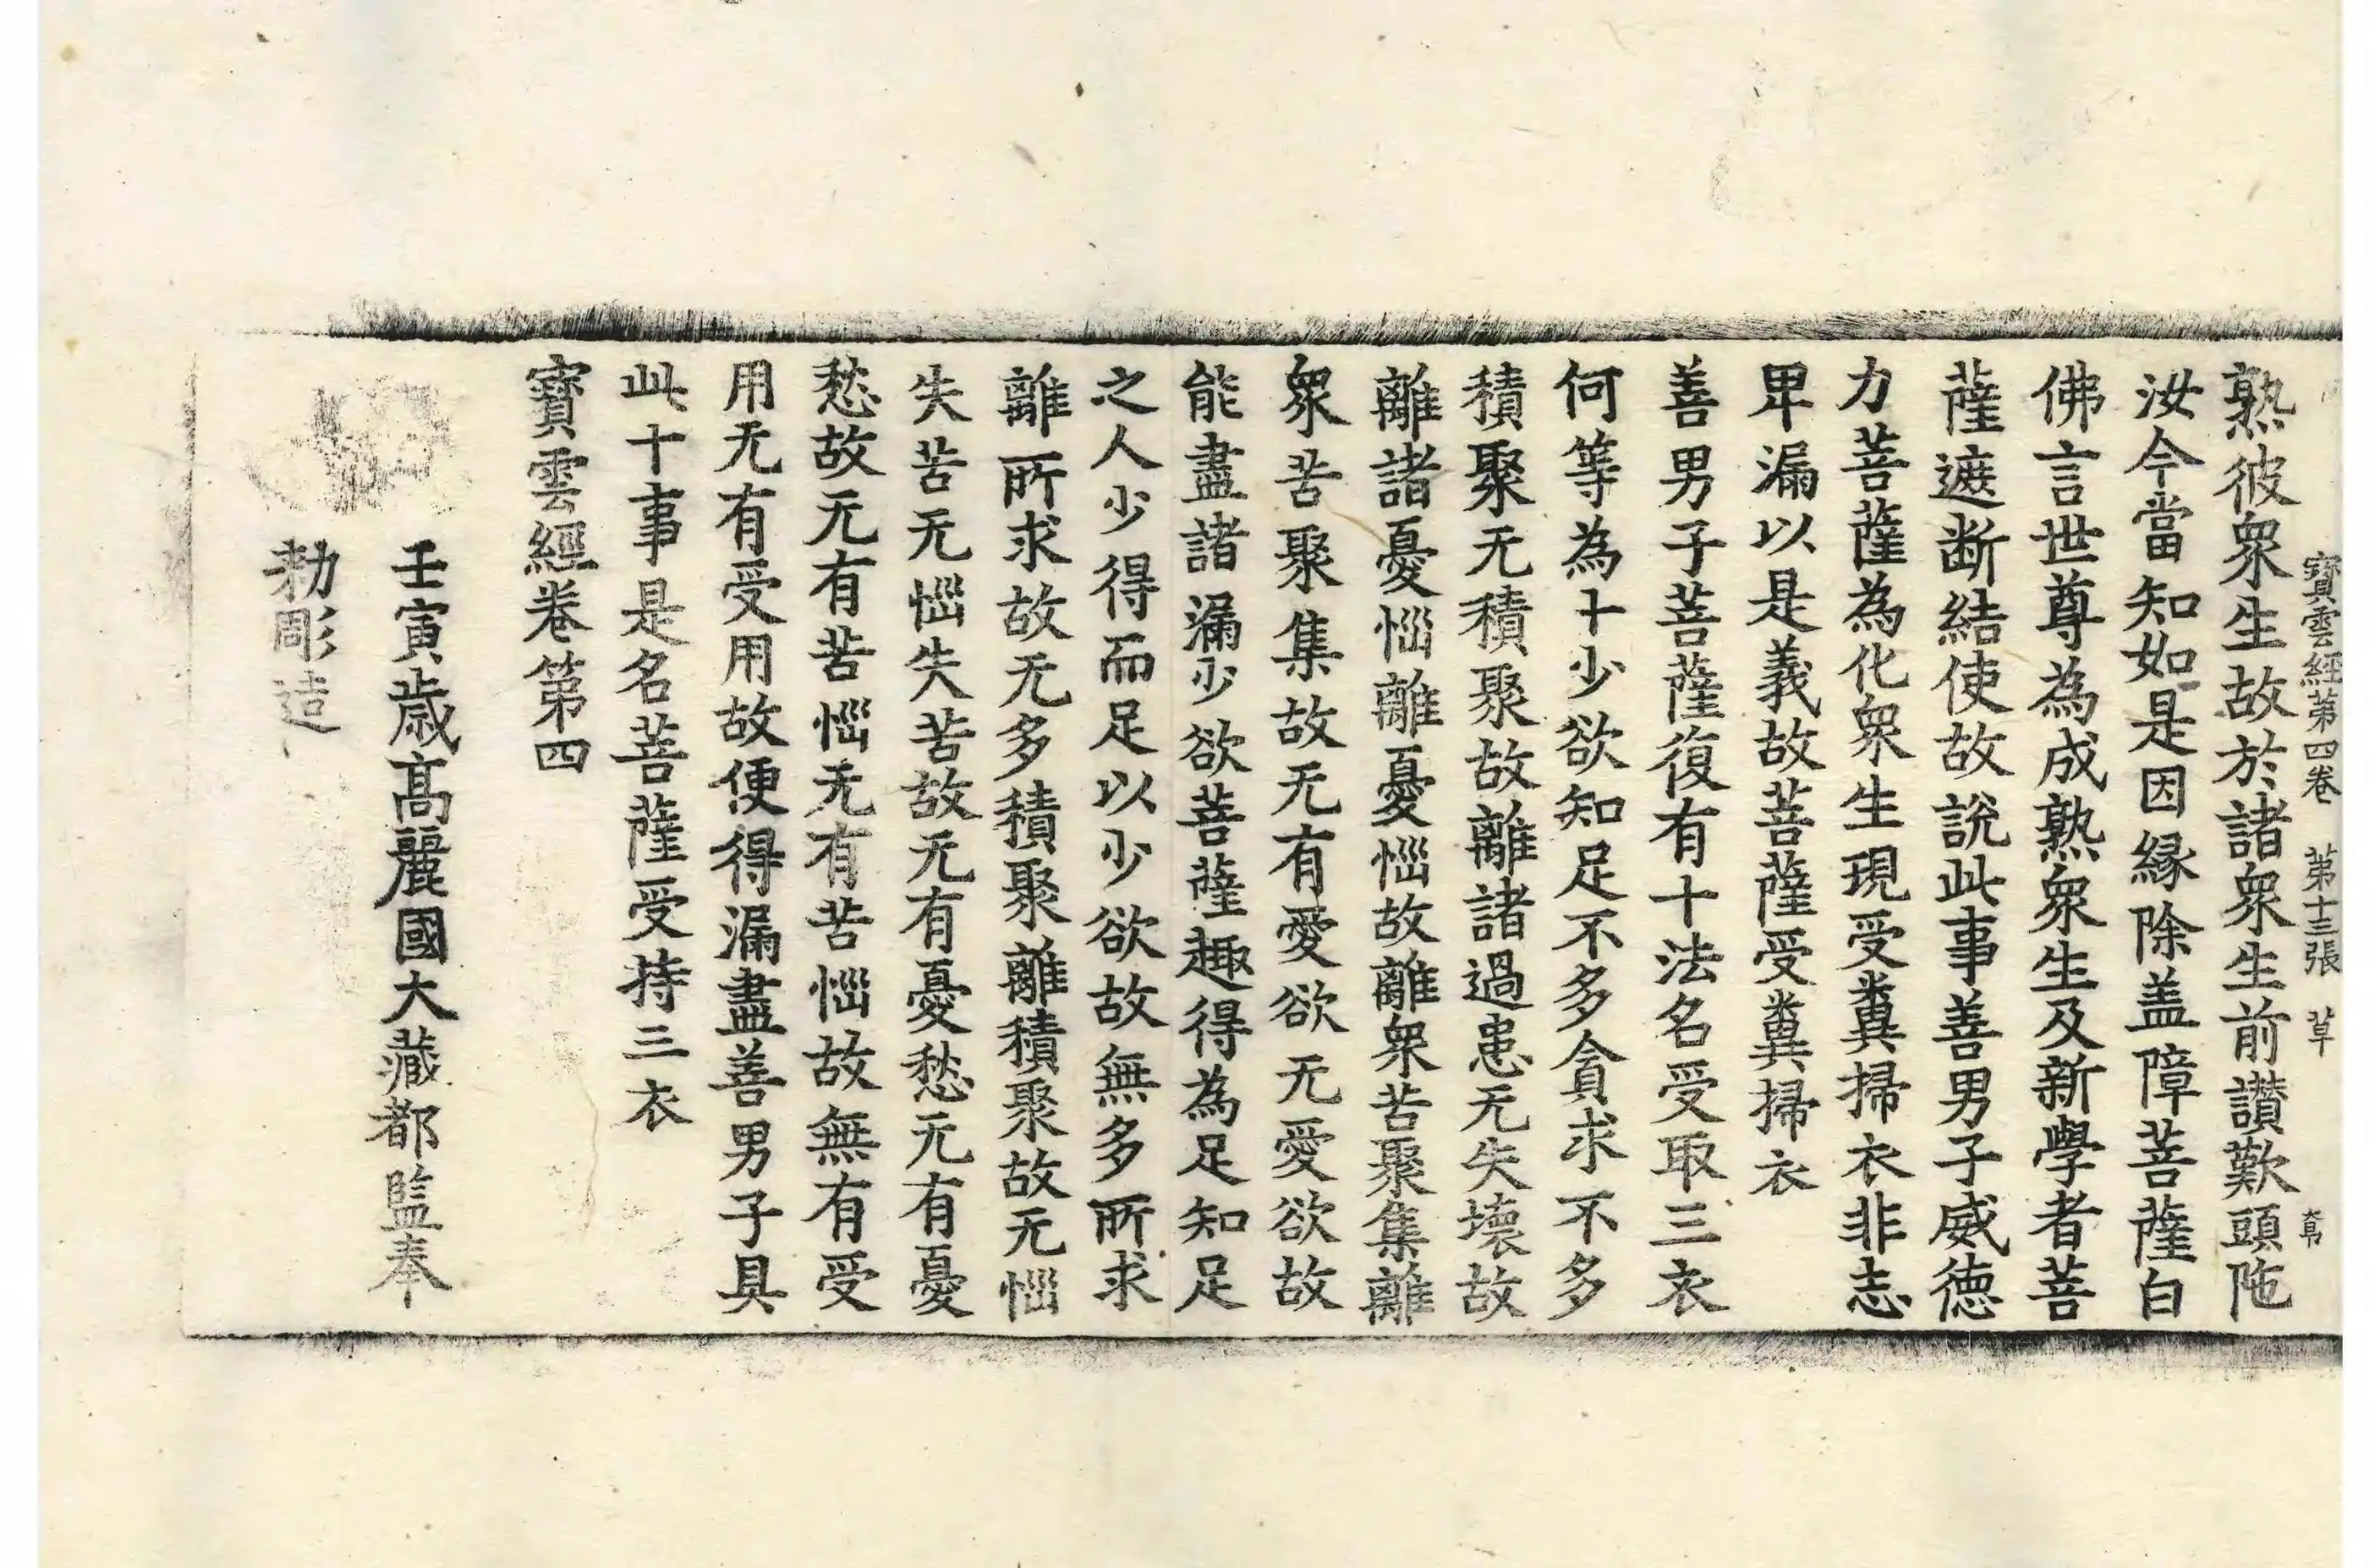 寶雲經第四卷 第十三張 草
熟彼衆生故於諸衆生前讃歎頭陁
汝今當知如是因縁除盖障菩薩白
佛言世尊為成熟衆生及新學者菩
薩遮断結使故說此事善男子威德
力菩薩為化衆生現受糞掃衣非志
卑漏以是義故菩薩受糞掃衣
善男子菩薩復有十法名受取三衣
何等為十少欲知足不多貪求不多
積聚无積聚故離諸過患无失壞故
離諸憂惱離憂惱故離衆苦聚集離
衆苦聚集故无有愛欲无愛欲故
能盡諸漏少欲菩薩趣得為足知足
之人少得而足以少欲故無多所求
離所求故无多積聚離積聚故无惱
失苦无惱失苦故无有憂愁无有憂
愁故无有苦惱无有苦惱故無有受
用无有受用故便得漏盡善男子具
此十事是名菩薩受持三衣
寶雲經卷第四
壬寅歳髙麗國大藏都監奉
勅彫造